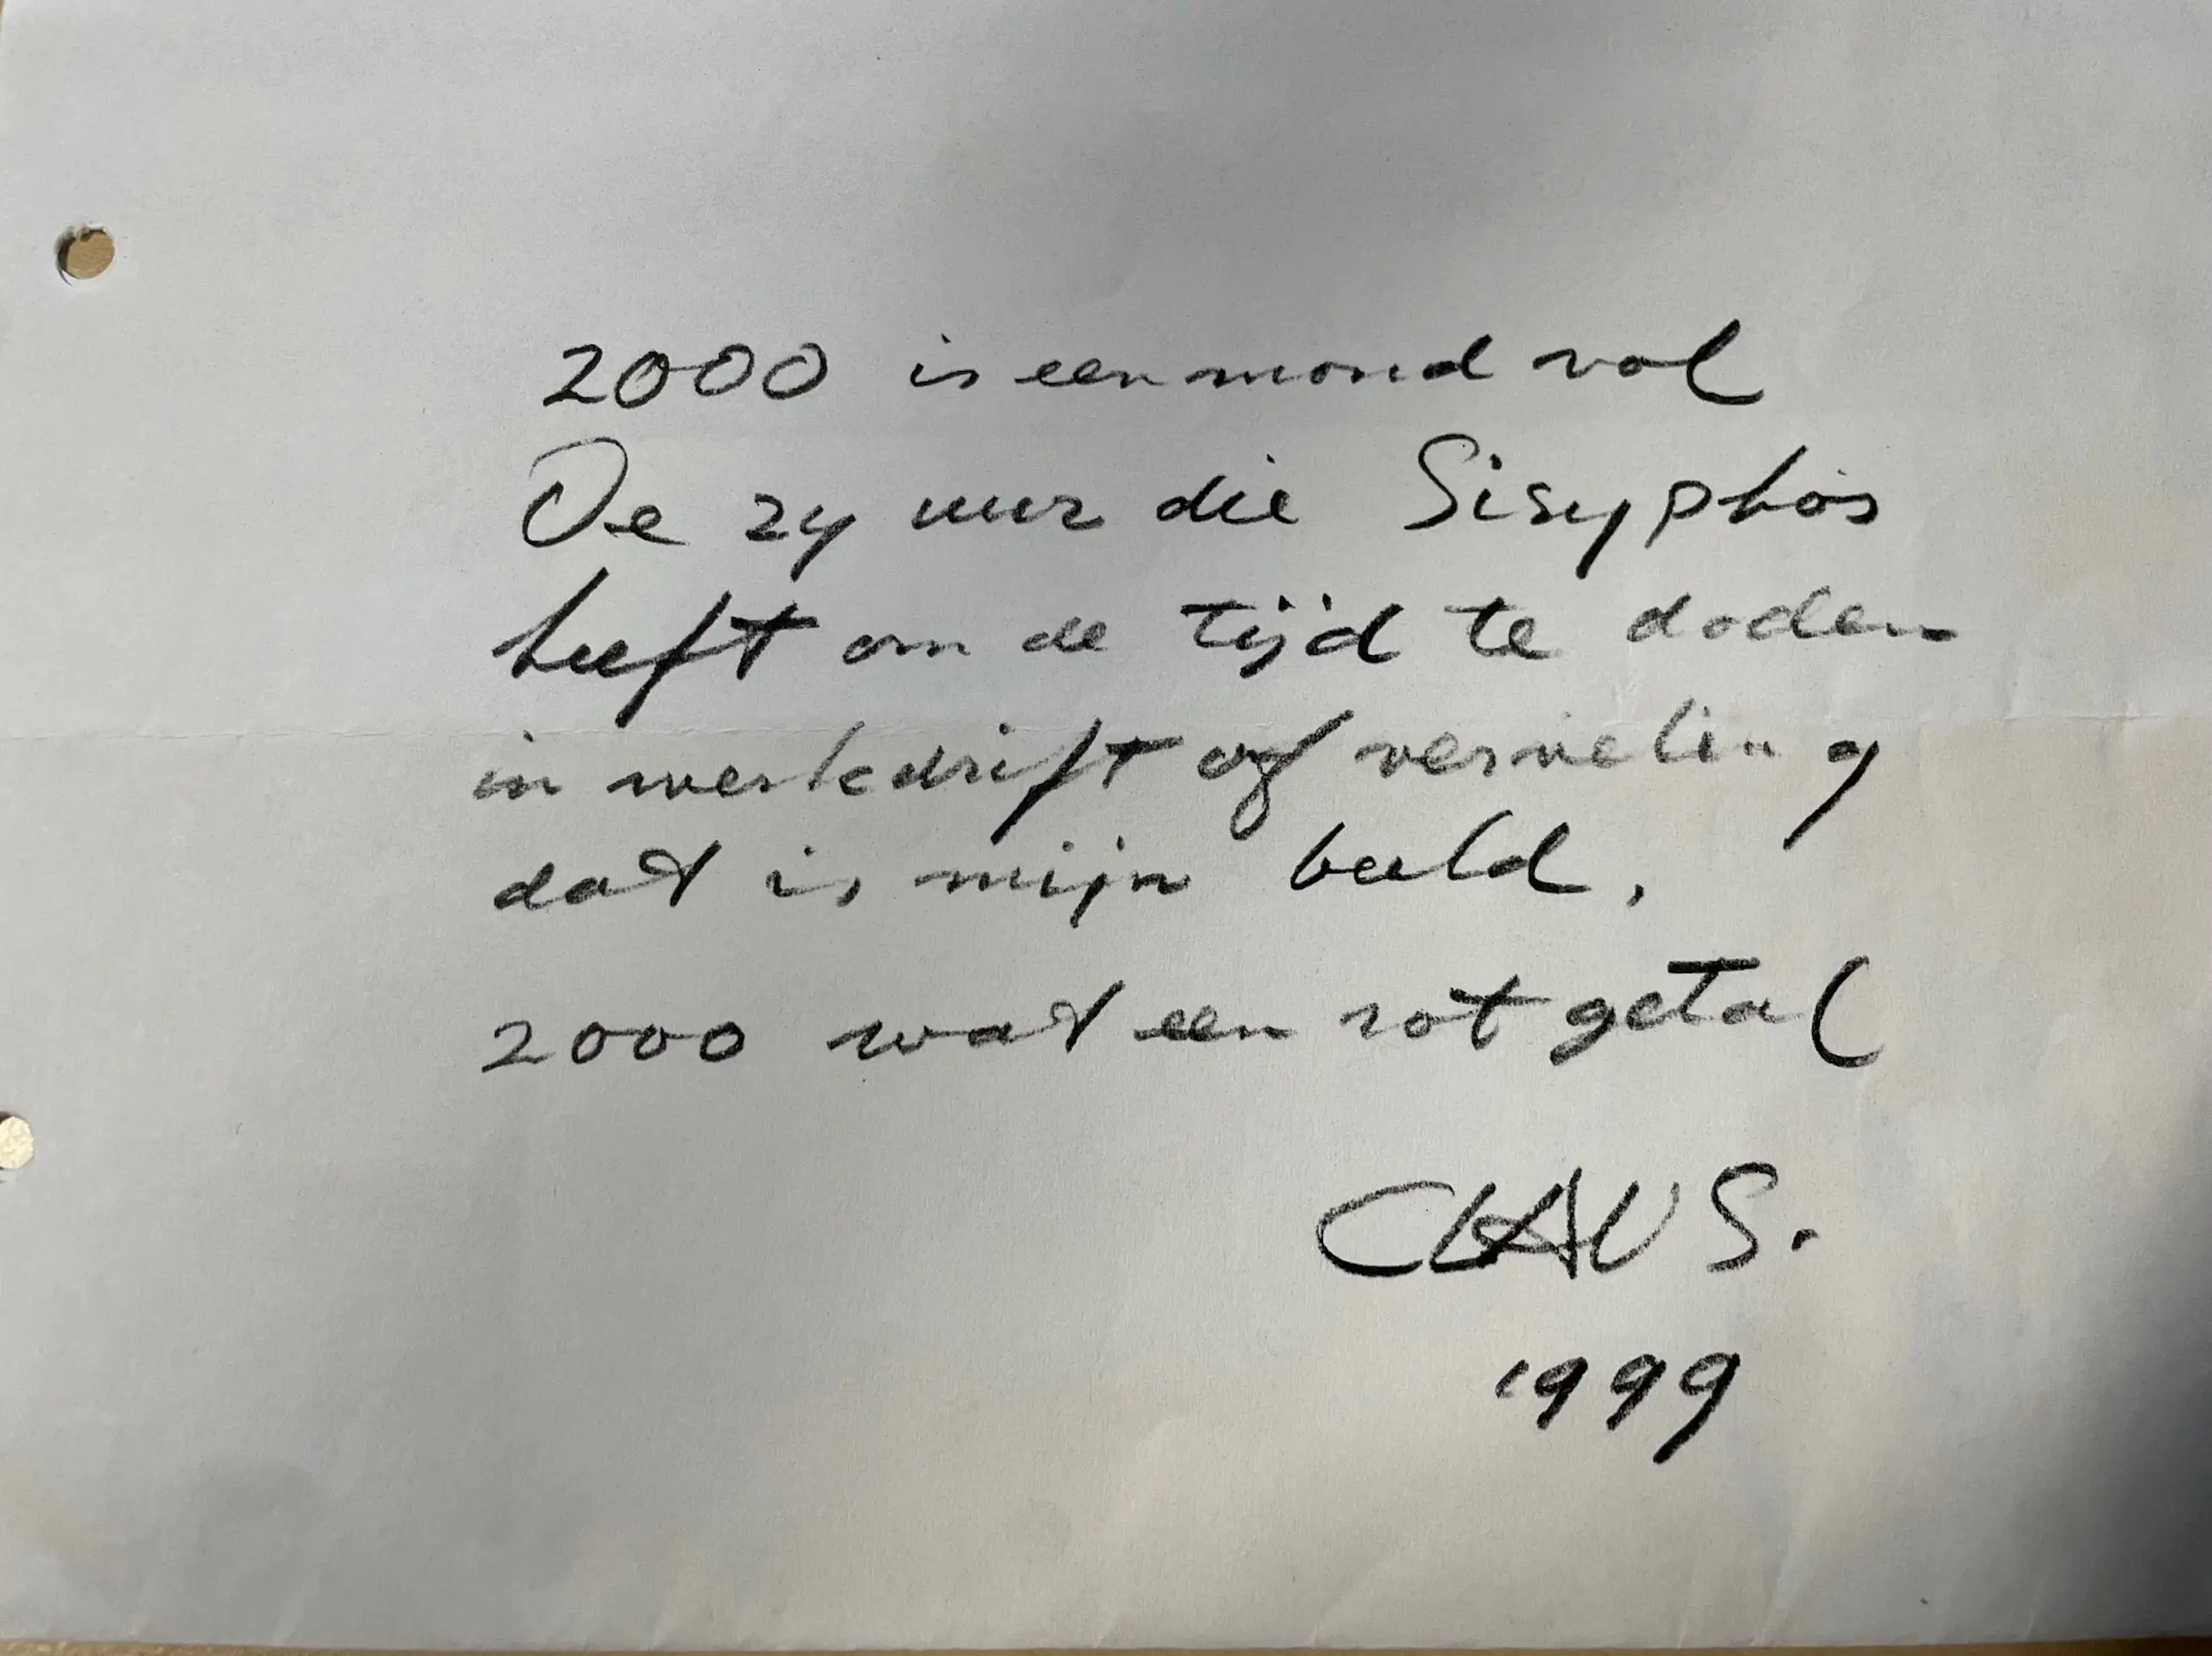 2000 is een mond vol
De zy uur die Sisyphos
heeft om de tijd te doden
in werkdrift of verveling
dat is mijn beeld.
2000 wat een rot getal
CLAUS.
1999